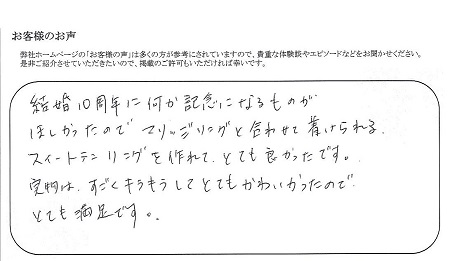 お客様のお声
弊社ホームページの「お客様の声」は多くの方が参考にされていますので、貴重な体験談やエピソードなどをお聞かせください。
是非ご紹介させていただきたいので、掲載のご許可もいただければ幸いです。
結婚10周年に何か記念になるものが
ほしかったので マリッジリングと合わせて着けられる
スイートテンリングを作れて、とても良かったです。
実物は、すごくキラキラしてとてもかわいかったので
とても満足です。